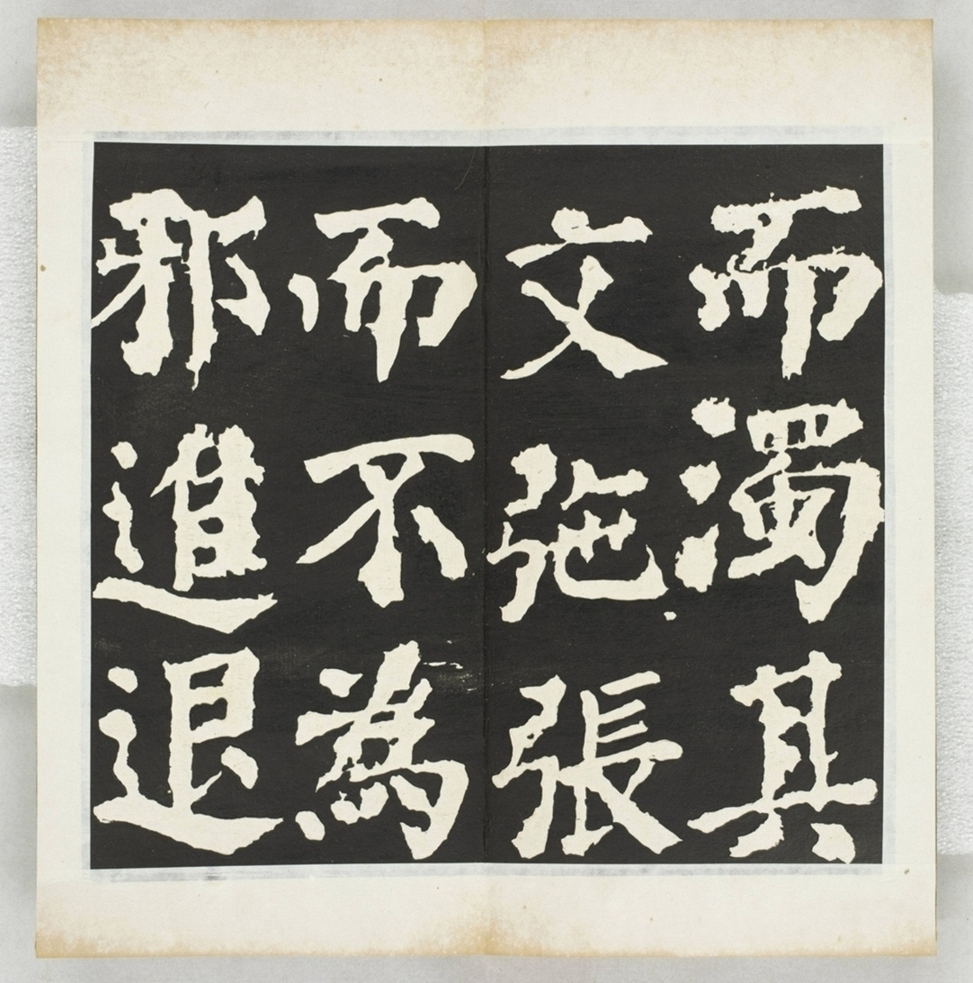 而濁其
文弛張
而不為
邪進退